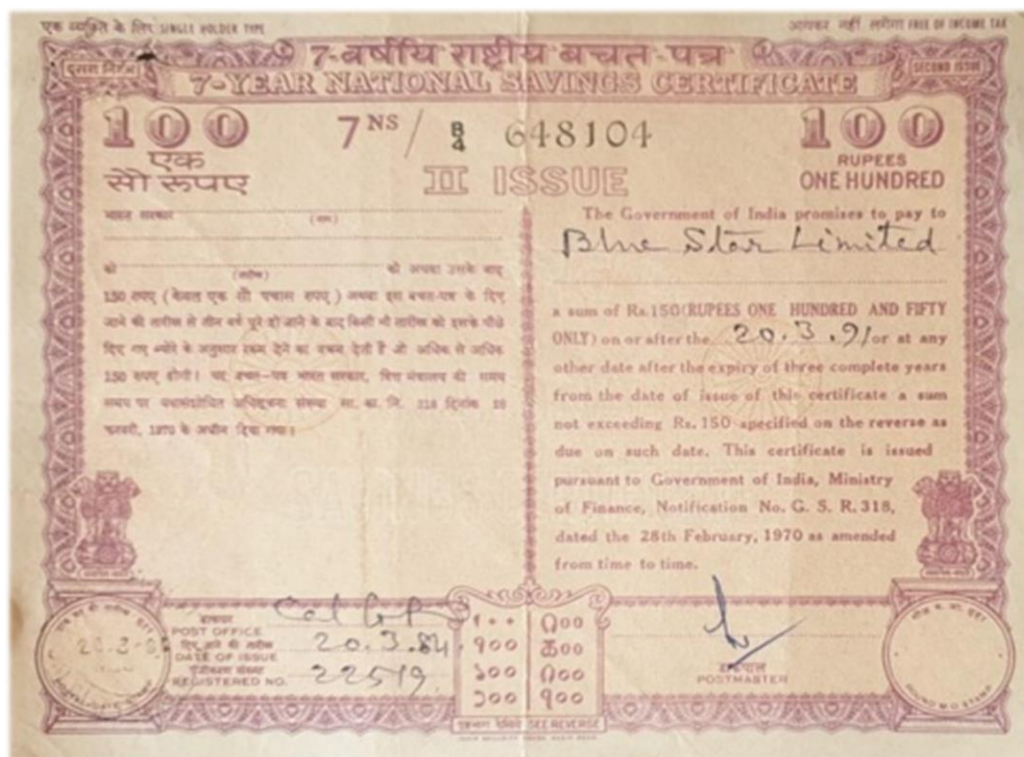 एक व्यक्ति के लिए SINGLE HOLDER TYPE
आयकर नहीं लगेगा FREE OF INCOME TAX
7-वर्षीय राष्ट्रीय बचत-पत्र
SECOND ISSUE
7-YEAR NATIONAL SAVINGS CERTIFICATE
100
7 NS / B/4 648104
100
एक
सौ रूपए
II ISSUE
RUPEES
ONE HUNDRED
भारत सरकार
(नाम)
को
(तारीख)
को अथवा उसके बाद
150 रुपए (केवल एक सौ पचास रुपए) अथवा इस बचत-पत्र के दिए
जाने की तारीख से तीन वर्ष पूरे हो जाने के बाद किसी भी तारीख को इसके पीछे
दिए गए ब्योरे के अनुसार रकम देने का वचन देती है जो अधिक से अधिक
150 रुपए होगी। यह बचत-पत्र भारत सरकार, वित्त मंत्रालय की समय
समय पर यथासंशोधित अधिसूचना संख्या सा. का. नि. 318 दिनांक 28
फरवरी, 1970 के अधीन दिया गया।
The Government of India promises to pay to
Blue Star Limited
a sum of Rs.150(RUPEES ONE HUNDRED AND FIFTY
ONLY) on or after the 20.3.91 or at any
other date after the expiry of three complete years
from the date of issue of this certificate a sum
not exceeding Rs. 150 specified on the reverse as
due on such date. This certificate is issued
pursuant to Government of India, Ministry
of Finance, Notification No. G. S. R. 318,
dated the 28th February, 1970 as amended
from time to time.
डाकघर
POST OFFICE
दिए जाने की तारीख
DATE OF ISSUE 20.3.84
पंजीकरण संख्या
REGISTERED NO. 22519
SEE REVERSE
डाकपाल
POSTMASTER